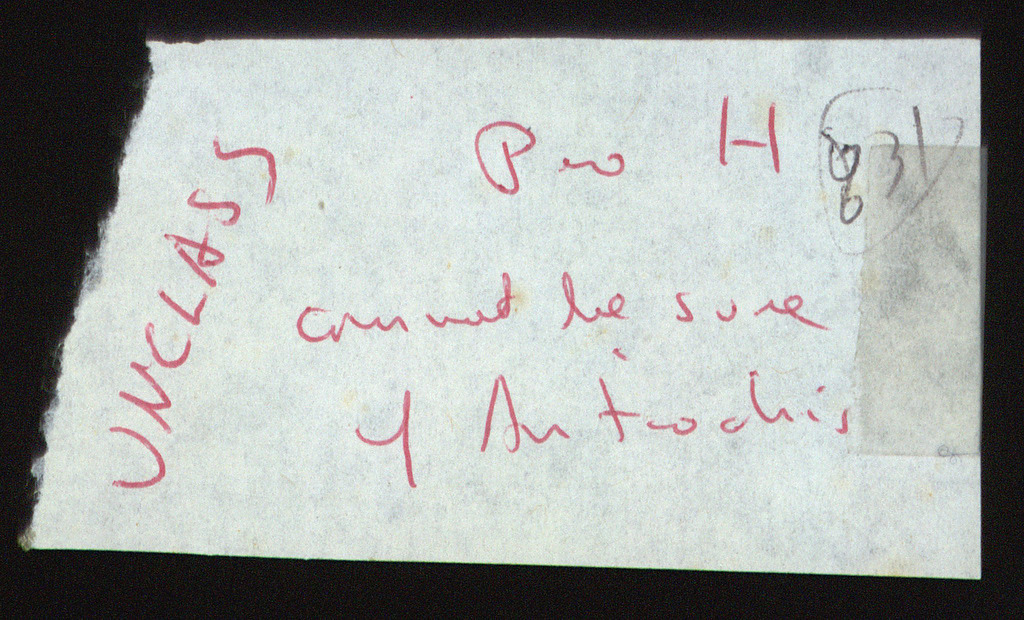 UNCLASS
Pro H
831
cannot be sure
of Antiochis